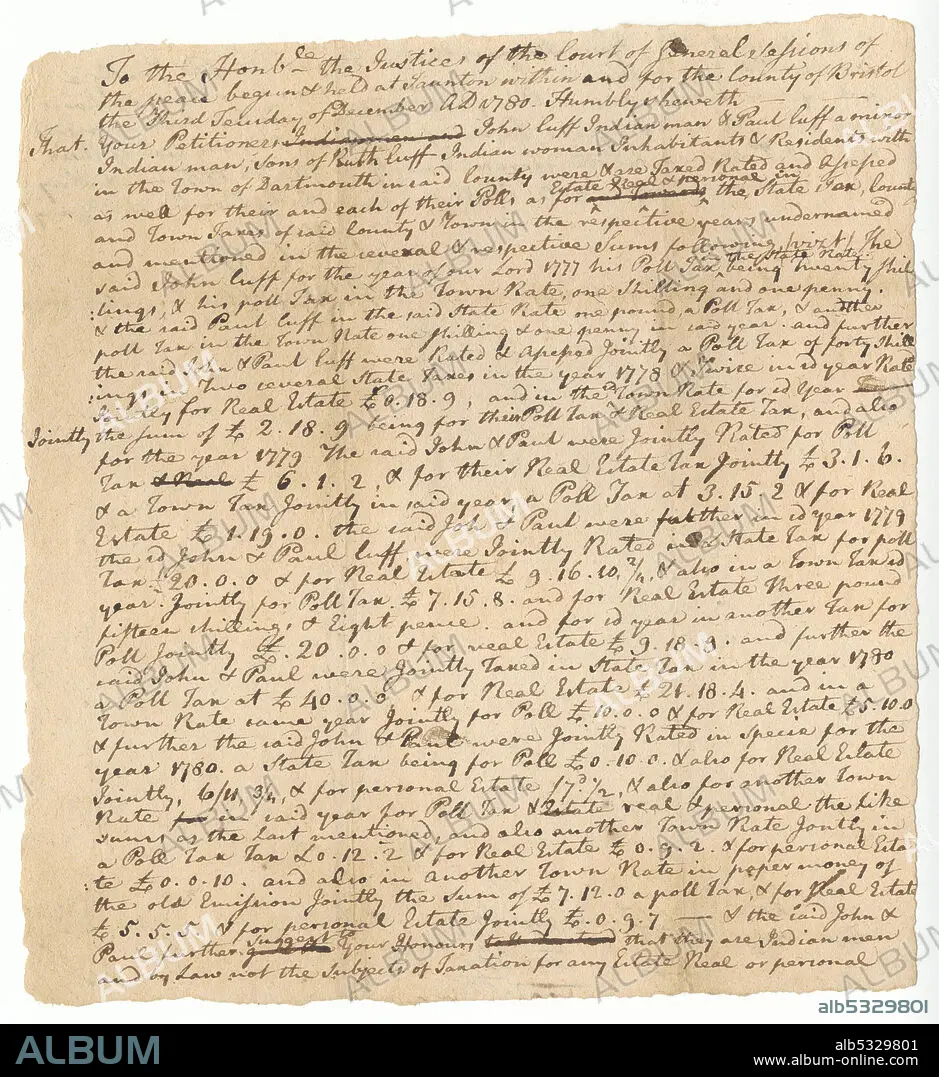 To the Honble the Justices of the Court of General sessions of
the peace begun & held at Taunton within and for the County of Bristol
the Third Teusday of December AD 1780. Humbly sheweth
That. Your Petitioners Indian men and John Cuff Indian man & Paul Cuff a minor
Indian man, Sons of Ruth Cuff Indian woman Inhabitants & Residents with
in the Town of Dartmouth in said County were & are Taxed Rated and assessed
Estate Real & personal in
as well for their and each of their Polls as for the State Tax, County
and Town Taxes of said County & Town in the respective years undernamed
and mentioned in the several & respective Sums following, (vizt) The
in the State Rate.
said John Cuff for the year of our Lord 1777 his Poll Tax being twenty Shil
:lings, & his poll Tax in the Town Rate, one Shilling and one penny.
& the said Paul Cuff in the said State Rate one pound, a Poll Tax, & another
poll Tax in the Town Rate one shilling & one penny in said year. and further
the said John & Paul Cuff were Rated & assessed Jointly a Poll Tax of forty Shill
:ings in Two several State Taxes in the year 1778 & likewise in sd year Rate
Jointly for Real Estate £ 0. 18. 9, and in the Town Rate for sd Year
Jointly the sum of £ 2. 18. 9 being for their Poll Tax & Real Estate Tax, and also
for the year 1779 The said John & Paul were Jointly Rated for Poll
Tax & Real £ 6. 1. 2, & for their Real Estate Tax Jointly £ 3. 1. 6.
& a Town Tax Jointly in said year, a Poll Tax at 3. 15. 2 & for Real
Estate £ 1. 19. 0. the said Joh & Paul were further in sd year 1779
the sd John & Paul Cuff were Jointly Rated in a State Tax for poll
Tax £ 20. 0. 0 & for Real Estate £ 9. 16. 10, & also in a Town Tax sd
year. Jointly for Poll Tax £ 7. 15. 8. and for Real Estate Three pound
fifteen shillings & Eight pence. and for sd year in another Tax for
Poll Jointly £. 20. 0. 0 & for real Estate £ 9. 18. 9. and further the
said John & Paul were Jointly Taxed in State Tax in the year 1780
a Poll Tax at £ 40. 0. 0 & for Real Estate £ 21. 18. 4. and in a
Town Rate same year Jointly for Poll £ 10. 0. 0 & for Real Estate £ 5. 10. 0
& further the said John & Paul were Jointly Rated in specie for the
year 1780. a State Tax being for Poll £ 0. 10. 0. & also for Real Estate
Jointly, 6/11, 3/4, & for personal Estate /7d 1/2, & also for another Town
Rate in said year for Poll Tax & Estate real & personal the like
sums as the last mentioned, and also another Town Rate Jontly in
a Poll Tax Tax £ 0. 12. 2 & for Real Estate £ 0. 9. 2. & for personal Esta
:te £ 0. 0. 10. and also in another Town Rate in paper money of
the old Emission Jointly the Sum of £ 7. 12. 0 a poll Tax, & for Real Estate
£ 5. 5. 5. & for personal Estate Jointly £. 0. 9. 7 — & the said John &
Paul further suggest to Your Honours that they are Indian men
and by Law not the Subjects of Taxation for any Estate Real or personal
ALBUM
alb5329801
alb5329801
www.album-online.com